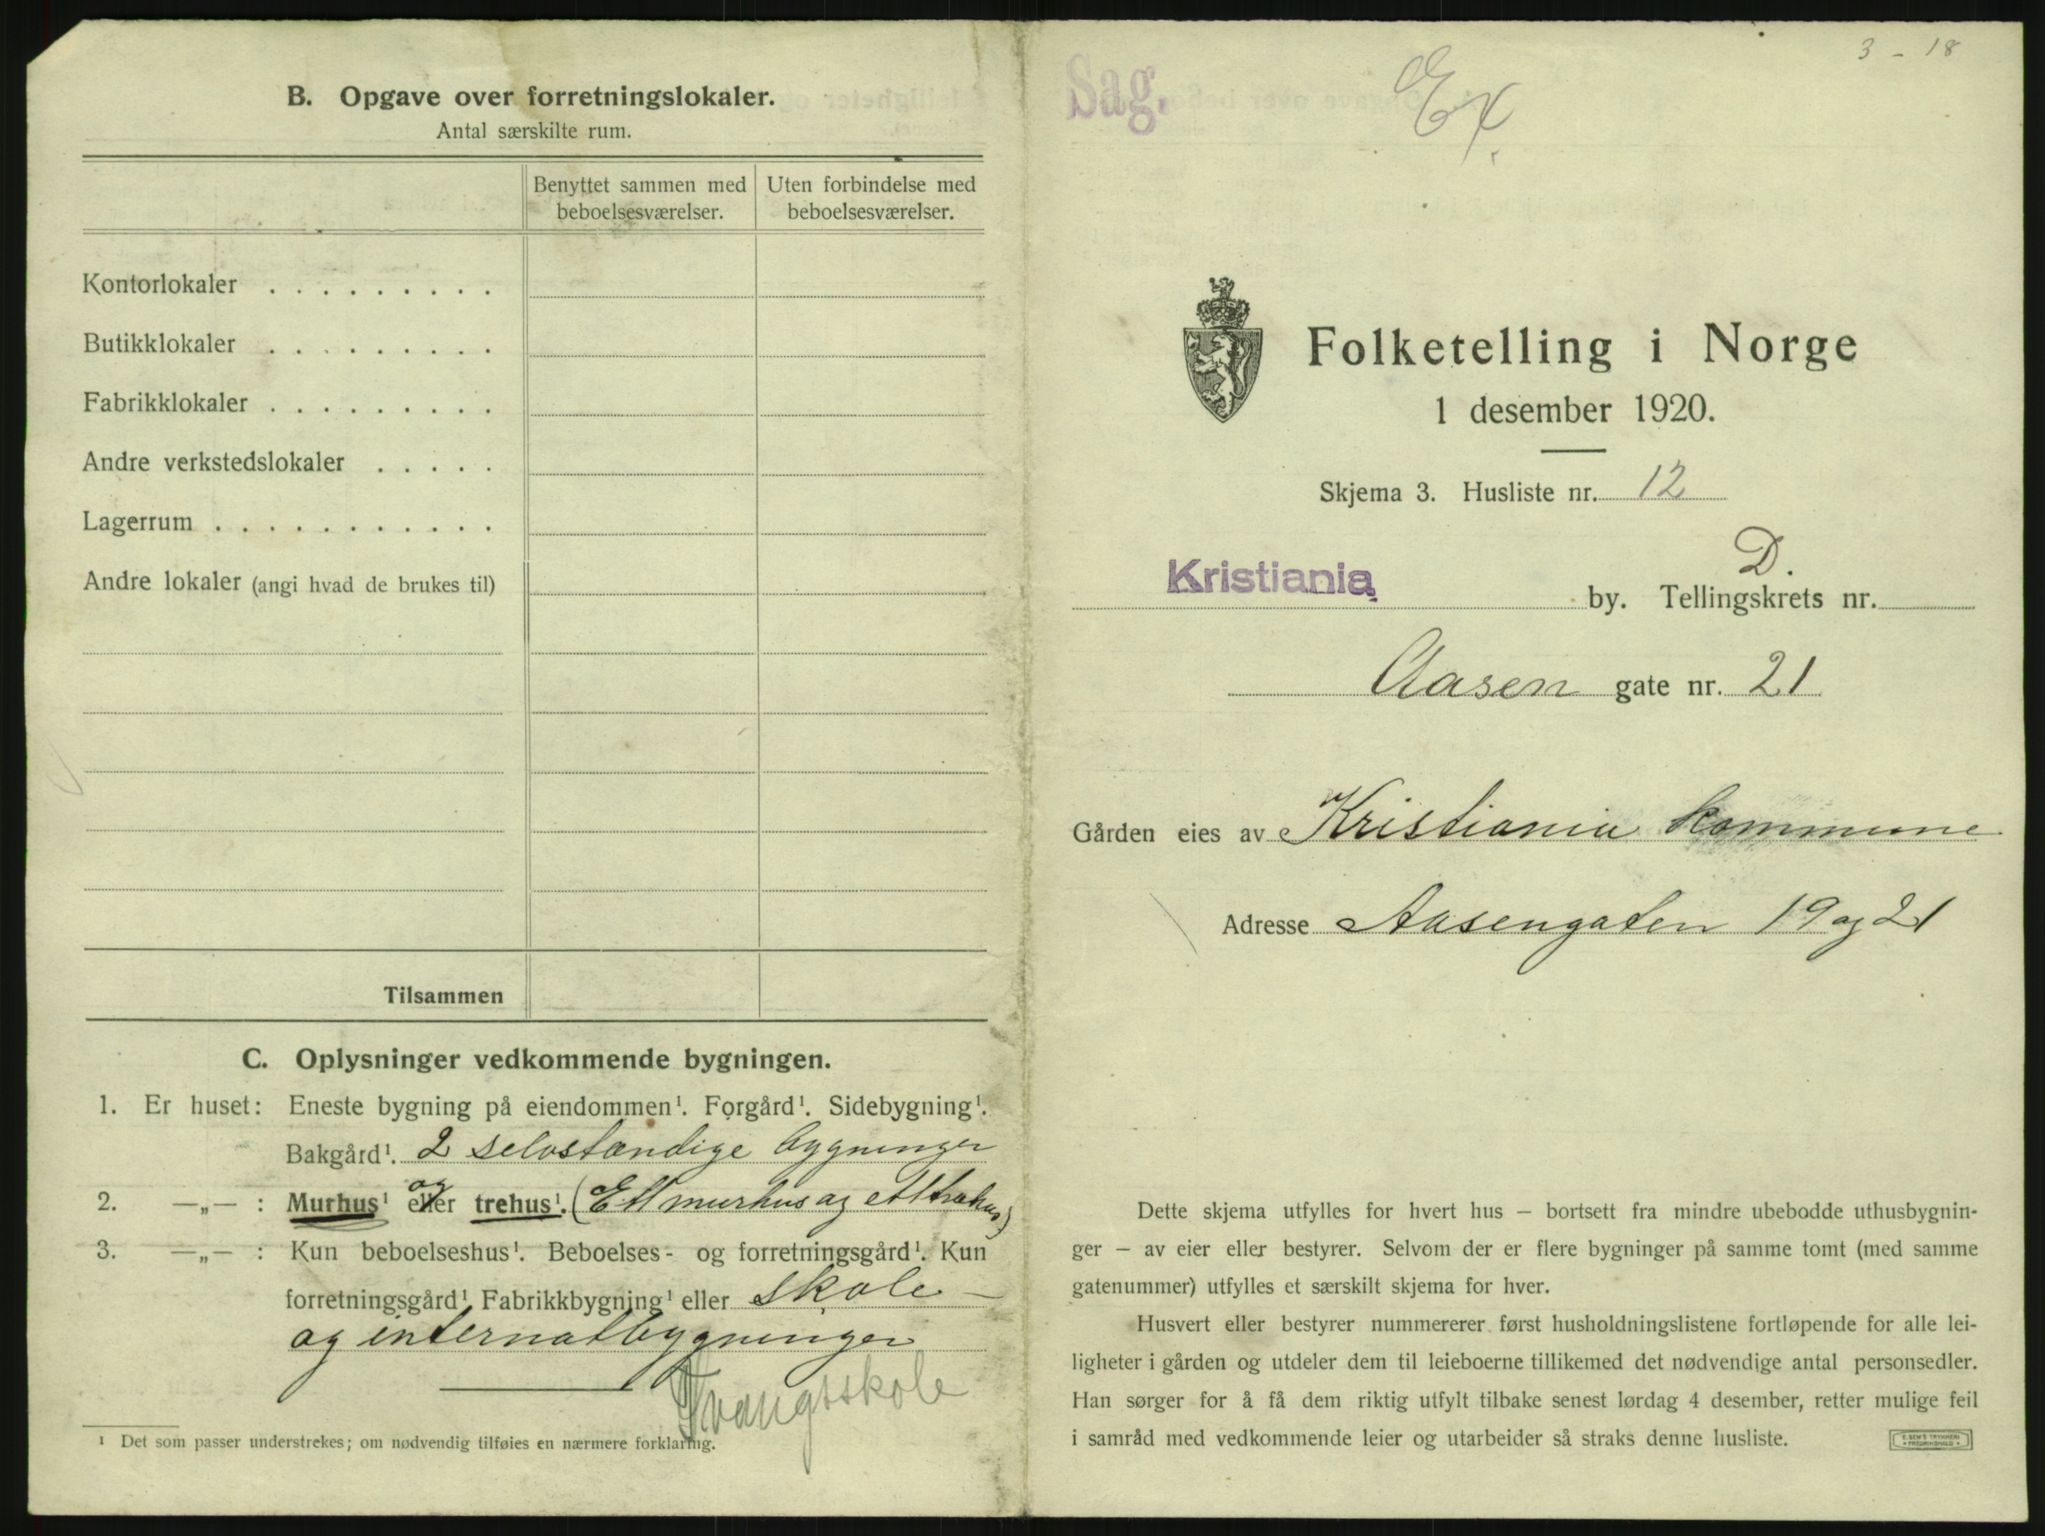 B. Opgave over forretningslokaler.
Antal særskilte rum.
Benyttet sammen med beboelsesværelser.
Uten forbindelse med beboelsesværelser.
Kontorlokaler . . . . . . . . .
Butikklokaler . . . . . . . . .
Fabrikklokaler . . . . . . . . .
Andre verkstedslokaler . . . . .
Lagerrum . . . . . . . . . . .
Andre lokaler (angi hvad de brukes til)
Tilsammen
C. Oplysninger vedkommende bygningen.
1. Er huset: Eneste bygning på eiendommen¹. Forgård¹. Sidebygning¹.
Bakgård¹. 2 selvstændige bygninger
2. —„— : Murhus¹ og eller trehus¹. (Ett murhus og ett trehus)
3. —„— : Kun beboelseshus¹. Beboelses- og forretningsgård¹. Kun
forretningsgård¹ Fabrikkbygning¹ eller skole-
og internatbygninger
Tvangsskole
¹ Det som passer understrekes; om nødvendig tilføies en nærmere forklaring.
3 - 18
Sag. Ex.
Folketelling i Norge
1 desember 1920.
Skjema 3. Husliste nr. 12
D.
Kristiania by. Tellingskrets nr.
Aasen gate nr. 21
Gården eies av Kristiania kommune
Adresse Aasengaten 19 og 21
Dette skjema utfylles for hvert hus – bortsett fra mindre ubebodde uthusbygnin-
ger – av eier eller bestyrer. Selvom der er flere bygninger på samme tomt (med samme
gatenummer) utfylles et særskilt skjema for hver.
Husvert eller bestyrer nummererer først husholdningslistene fortløpende for alle lei-
ligheter i gården og utdeler dem til leieboerne tillikemed det nødvendige antal personsedler.
Han sørger for å få dem riktig utfylt tilbake senest lørdag 4 desember, retter mulige feil
i samråd med vedkommende leier og utarbeider så straks denne husliste.